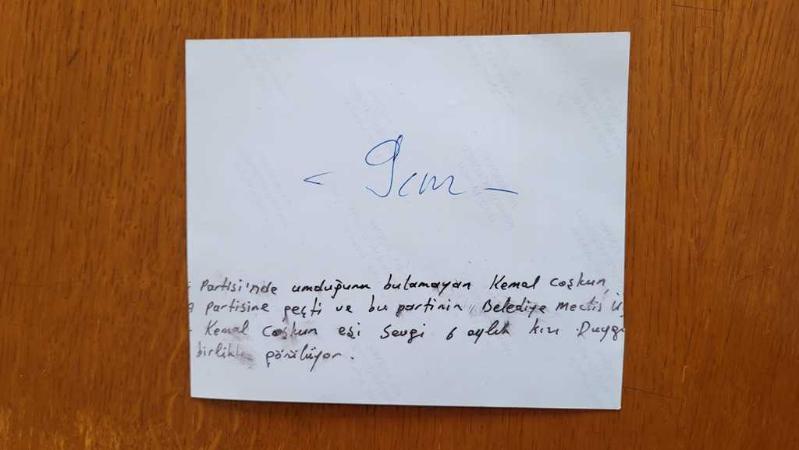 < 9cm -
Partisi'nde umduğunu bulamayan Kemal Coşkun,
partisine geçti ve bu partinin Belediye Meclis Ü
Kemal Coşkun eşi Sevgi 6 aylık kızı Duygu
birlikte görülüyor.